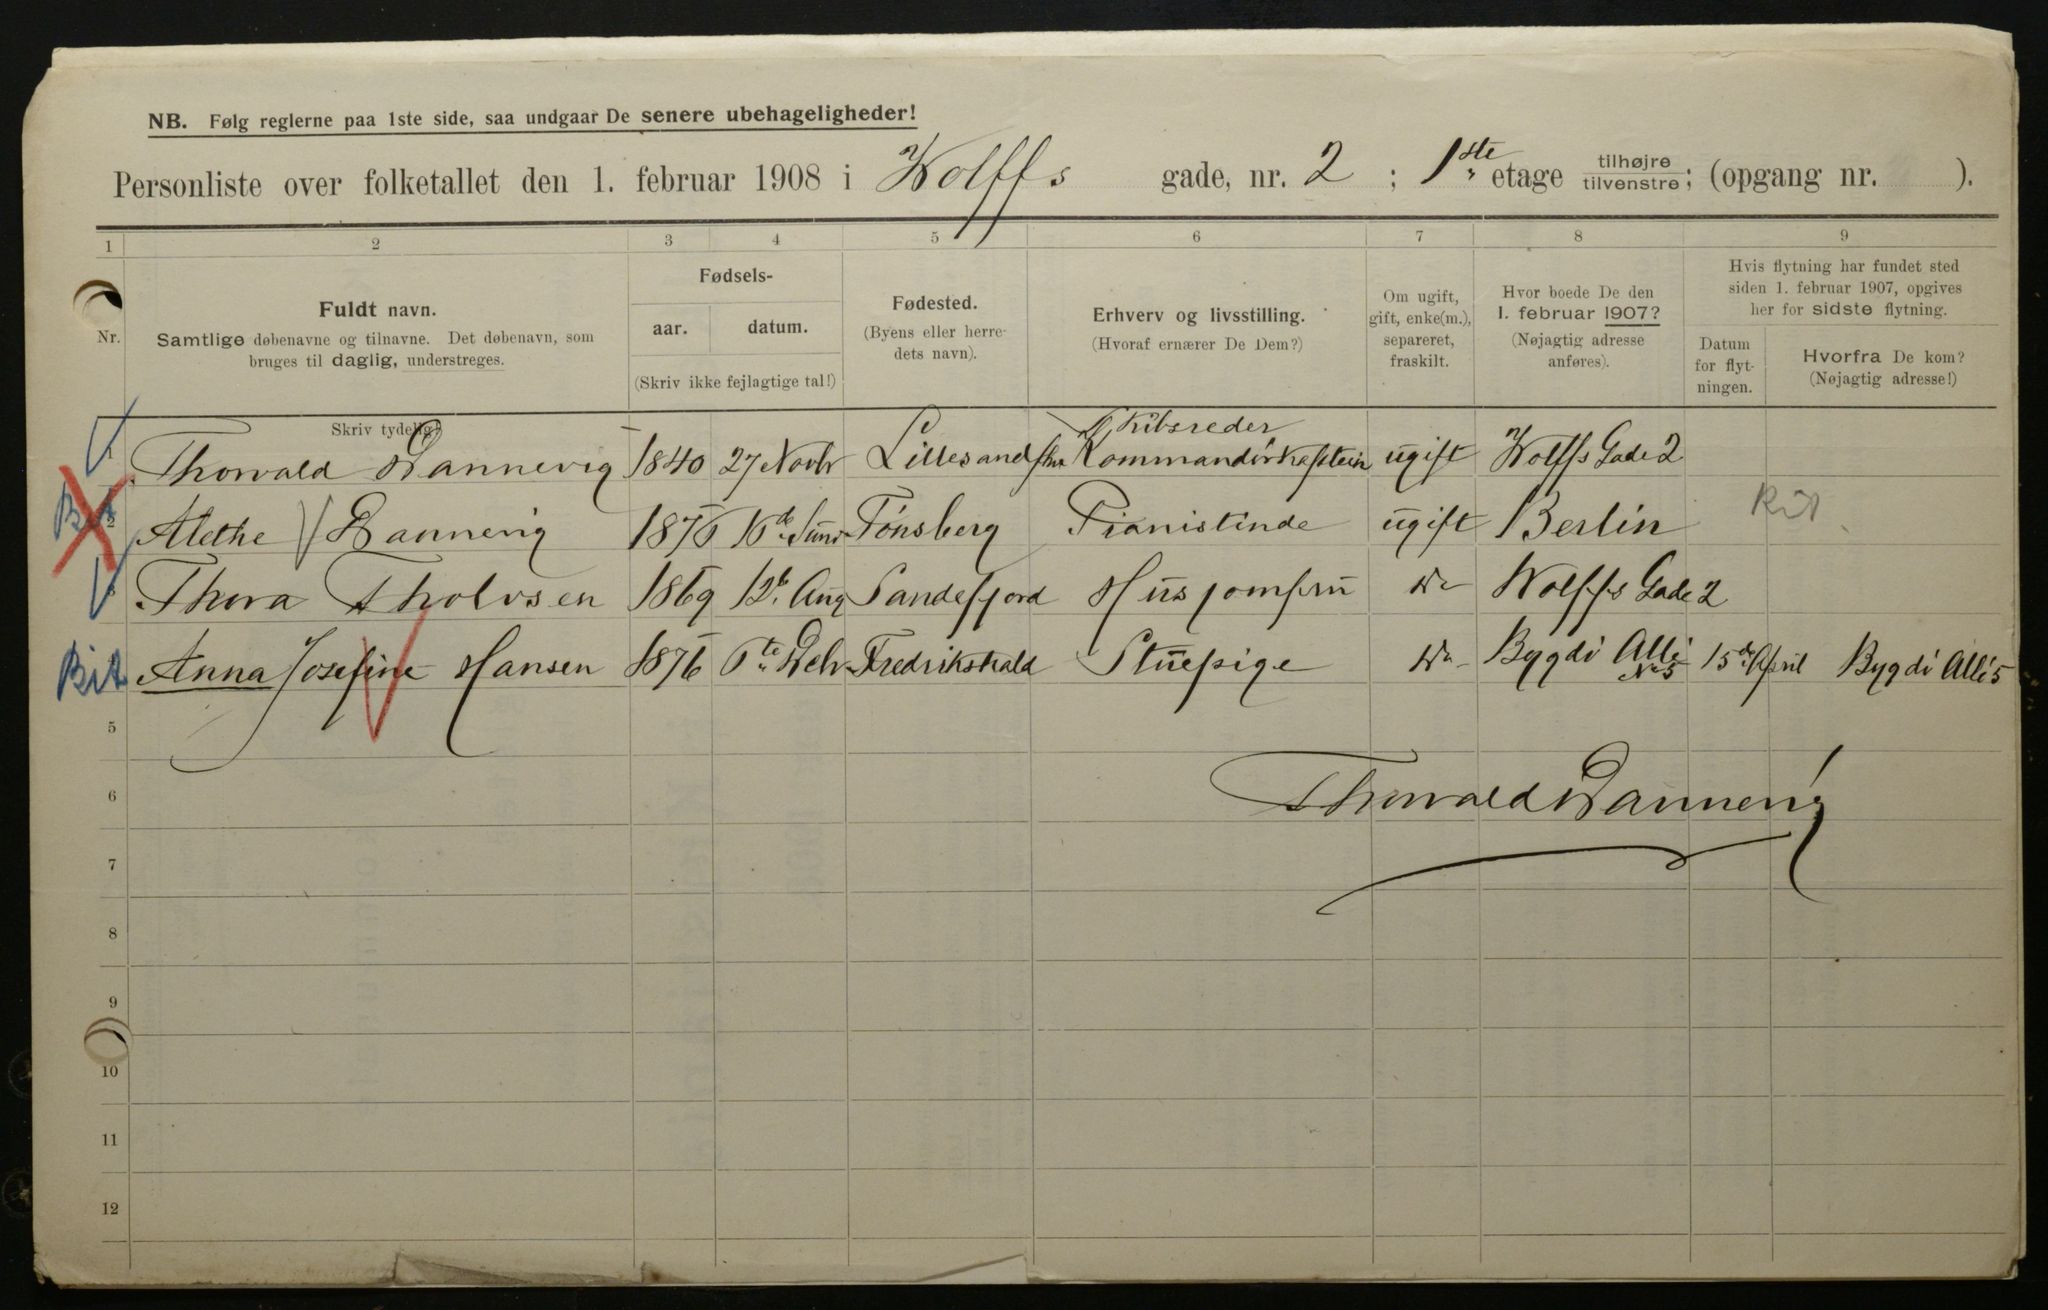 NB. Følg reglerne paa 1ste side, saa undgaar De senere ubehageligheder!
Personliste over folketallet den 1. februar 1908 i Wolffs gade, nr. 2 ; 1ste etage tilhøjre tilvenstre; (opgang nr. ).
1 2 3 4 5 6 7 8 9
Nr.
Fuldt navn.
Samtlige døbenavne og tilnavne. Det døbenavn, som
bruges til daglig, understreges.
Fødsels-
aar. datum.
(Skriv ikke fejlagtige tal!)
Fødested.
(Byens eller herre-
dets navn).
Erhverv og livsstilling.
(Hvoraf ernærer De Dem?)
Om ugift,
gift, enke(m.),
separeret,
fraskilt.
Hvor boede De den
1. februar 1907?
(Nøjagtig adresse
anføres).
Hvis flytning har fundet sted
siden 1. februar 1907, opgives
her for sidste flytning.
Datum
for flyt-
ningen.
Hvorfra De kom?
(Nøjagtig adresse!)
Skriv tydelig!
Skibsreder
1 Thorvald Dannevig 1840 27 Novbr Lillesand Kommandörkaptein ugift Wolffs Gade 2
2 Alethe Dannevig 1876 Juni Tönsberg Pianistinde ugift Berlin
3 Thora Tholvsen 1869 12te Aug Sandefjord Husjomfru Do Wolffs Gade 2
Bit Anna Josefine Hansen 1876 6te Decbr Fredrikshald Stuepige Do Bygdö Allé No 5 15de April Bygdö Allé 5
5
Thorvald Dannevig
6
7
8
9
10
11
12